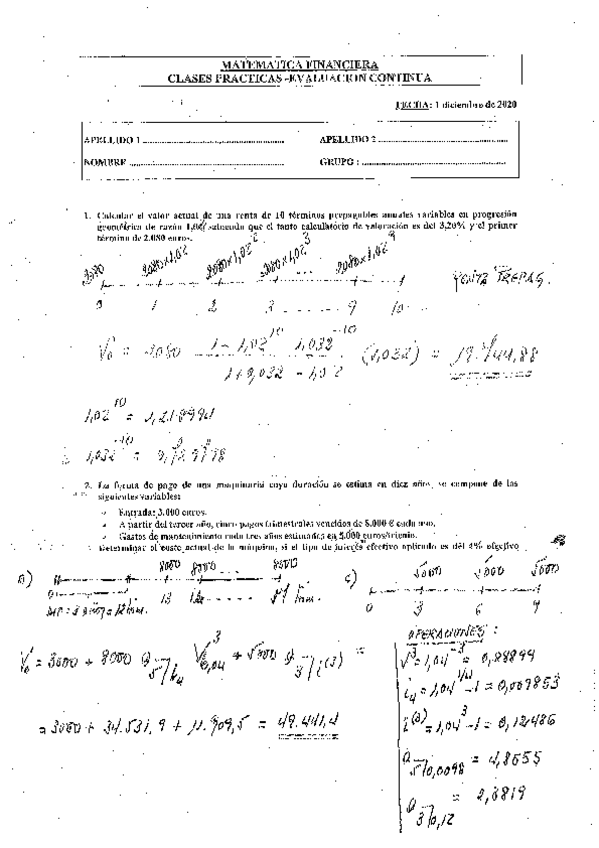 MATEMATICA FINANCIERA
CLASES PRACTICAS -EVALUACION CONTINUA
FECHA: 1 diciembre de 2020
APELLIDO 1 ........ APELLIDO 2 ........
NOMBRE ........ GRUPO : ........
1. Calcular el valor actual de una renta de 10 términos prepagables anuales variables en progresión
geométrica de razón 1,02 sabiendo que el tanto calculatorio de valoración es del 3,20% y el primer
término de 2.080 euros.
2080 2080x1,02 2080x1,02² 2080x1,02³ 2080x1,02⁹
0 1 2 3 ...... 9 10
RENTA PREPAG.
V₀ = 2080 (1 - 1,02¹⁰ 1,032⁻¹⁰) / (1+0,032 - 1,02) (1,032) =
1,02¹⁰ = 1,218994
1,032⁻¹⁰ =
2. La forma de pago de una maquinaria cuya duración se estima en diez años, se compone de las
siguientes variables:
- Entrada: 3.000 euros.
- A partir del tercer año, cinco pagos trimestrales vencidos de 8.000 € cada uno.
- Gastos de mantenimiento cada tres años estimados en 5.000 euros/trienio.
Determinar el costo actual de la máquina, si el tipo de interés efectivo aplicado es del 4% efectivo
8000 8000 8000
c) 5000 5000 5000
0 3 6 9
OPERACIONES :
V³ = 1,04⁻³ = 0,88899
i₄ = 1,04^1/4 - 1 = 0,009853
i⁽³⁾ = 1,04³ - 1 = 0,12486
a 5⏋0,0098 = 4,8555
a 3⏋0,12 = 2,3819
V₀ = 3000 + 8000 a 5⏋i₄ V³ 0,04 + 5000 a 3⏋i⁽³⁾ =
= 3000 + 34.531,9 + 11.909,5 = 49.441,4